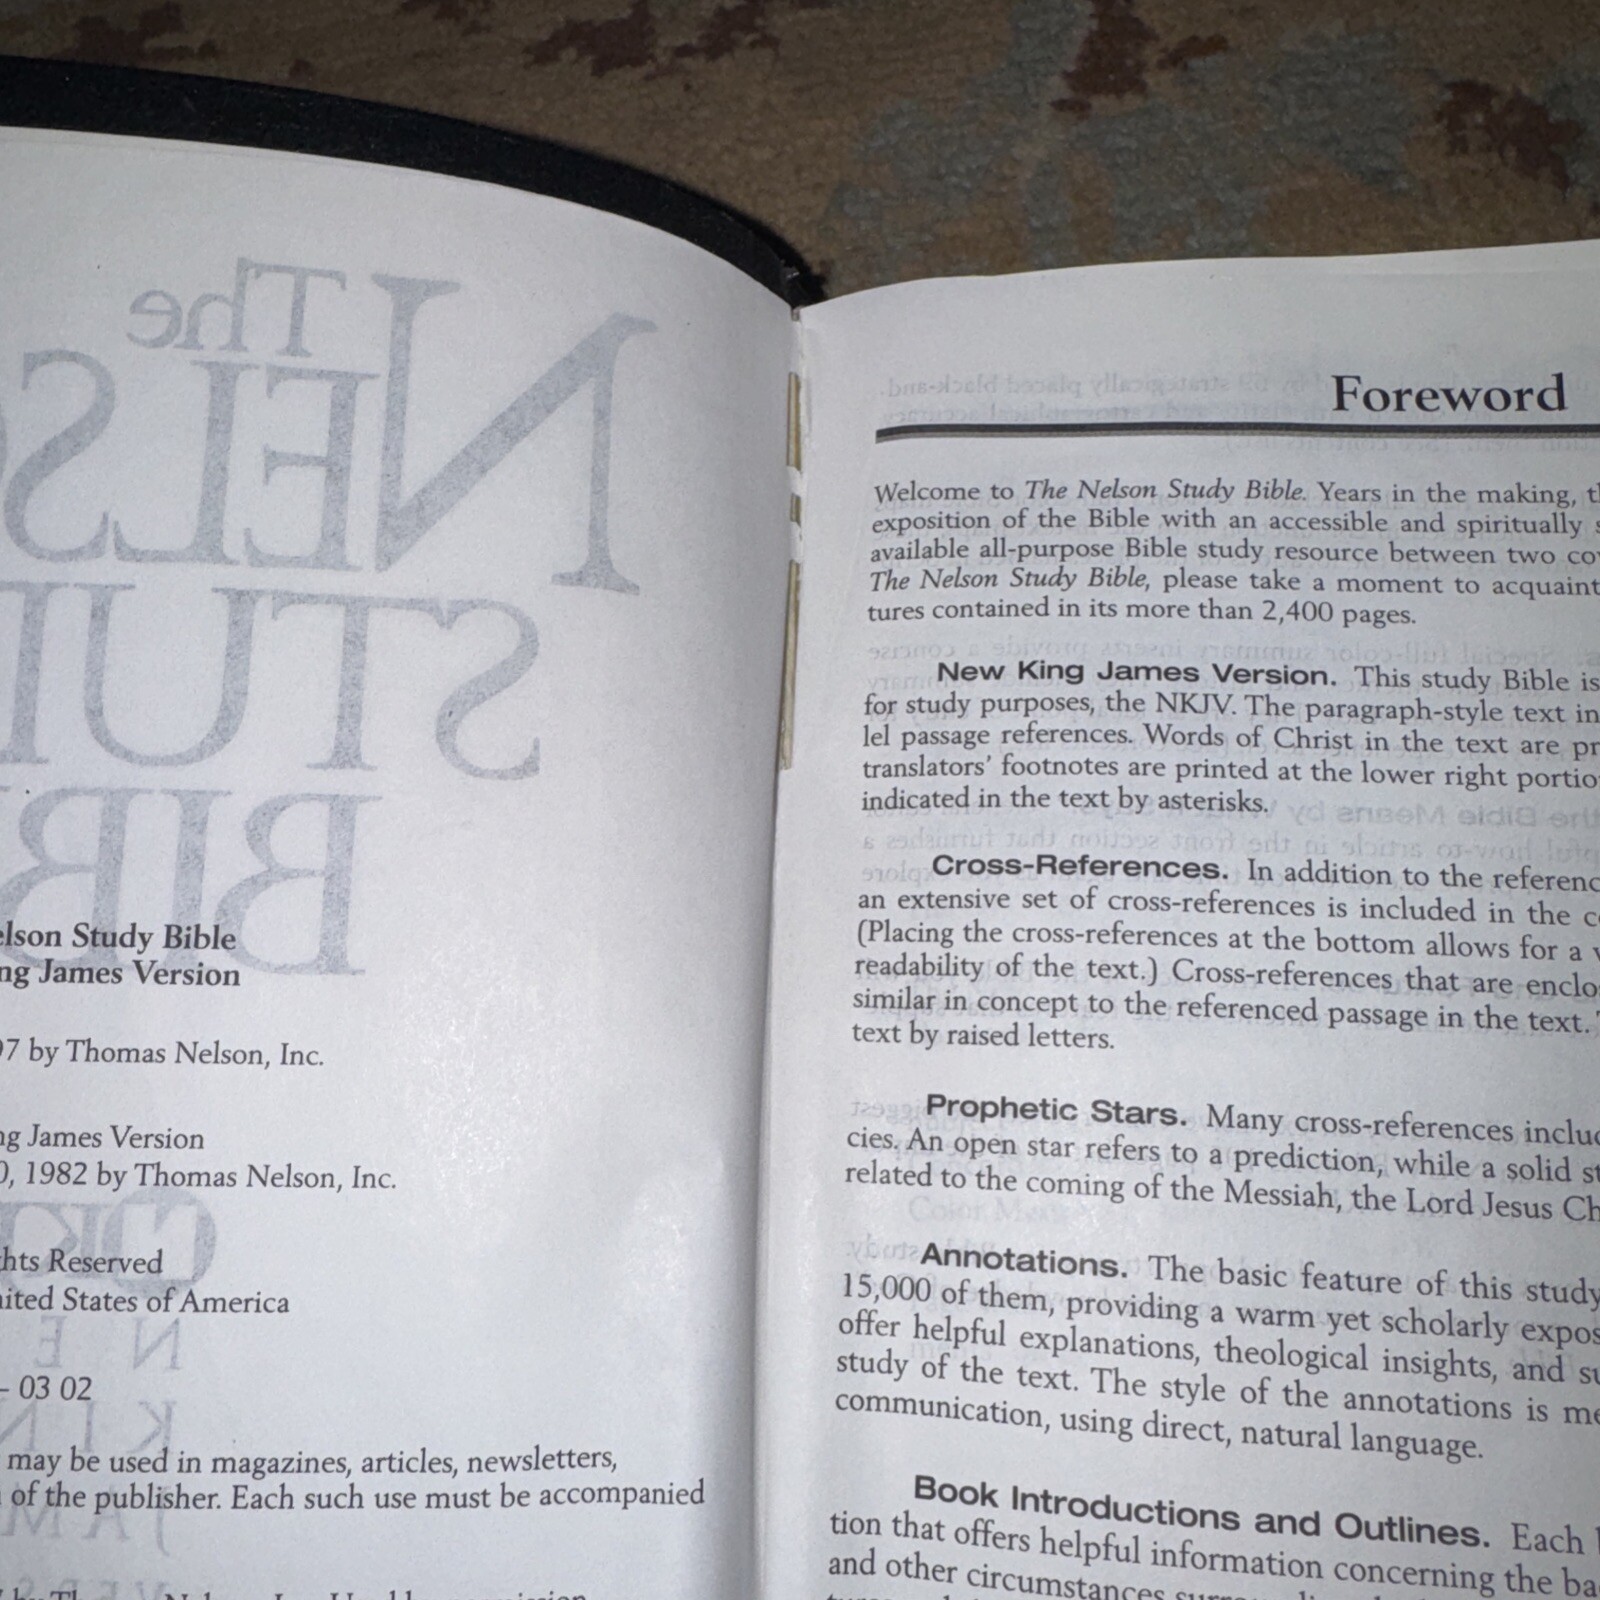 The
NELSO
STUD
BIBL
elson Study Bible
ng James Version
97 by Thomas Nelson, Inc.
ng James Version
0, 1982 by Thomas Nelson, Inc.
hts Reserved
nited States of America
N E
– 03 02
K I N
may be used in magazines, articles, newsletters,
of the publisher. Each such use must be accompanied
J A M
Foreword
Welcome to The Nelson Study Bible. Years in the making, th
exposition of the Bible with an accessible and spiritually s
available all-purpose Bible study resource between two cov
The Nelson Study Bible, please take a moment to acquaint
tures contained in its more than 2,400 pages.
New King James Version. This study Bible is
for study purposes, the NKJV. The paragraph-style text in
lel passage references. Words of Christ in the text are pr
translators’ footnotes are printed at the lower right portio
indicated in the text by asterisks.
Cross-References. In addition to the referenc
an extensive set of cross-references is included in the c
(Placing the cross-references at the bottom allows for a v
readability of the text.) Cross-references that are enclo
similar in concept to the referenced passage in the text.
text by raised letters.
Prophetic Stars. Many cross-references includ
cies. An open star refers to a prediction, while a solid st
related to the coming of the Messiah, the Lord Jesus Ch
Annotations. The basic feature of this study
15,000 of them, providing a warm yet scholarly expos
offer helpful explanations, theological insights, and su
study of the text. The style of the annotations is me
communication, using direct, natural language.
Book Introductions and Outlines. Each
tion that offers helpful information concerning the ba
and other circumstances